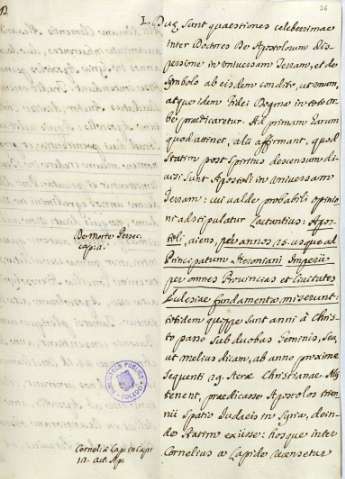 26
L. Duæ sunt quæstiones celeberrimæ
inter Doctores De Apostolorum Dis
persione in Universam Terram, et de
Symbolo ab eisdem condito, ut unum,
atque idem Fidei Dogma in toto or
be prædicaretur. Ad primam harum
quod attinet, alii affirmant, quod
statim post Spiritus descensum di
visi sunt Apostoli in Universam
Terram: cui valde probabili opinio
ni adstipulatur Lactantius: Apos
toli, aiens, per annos 25. usque ad
Principatum Neroniani Imperii
per omnes Provincias et Civitates
Eclesiæ fundamenta miserunt:
totidem quippe sunt anni à Chris
to passo sub duobus Geminis, seu,
ut melius dicam, ab anno proxime
sequenti 29. Æræ Christianæ. Alii
tenent, prædicasse Apostolos trien
nii spatio Judæis in Syria, dein
de statim exiisse: hosque inter
Cornelius à Lapide recensetur
De Morte Persec.
cap. 2.
Corneli à Lap. in Cap.
in Act. Ap.
BIBLIOTECA PUBLICA
TOLEDO